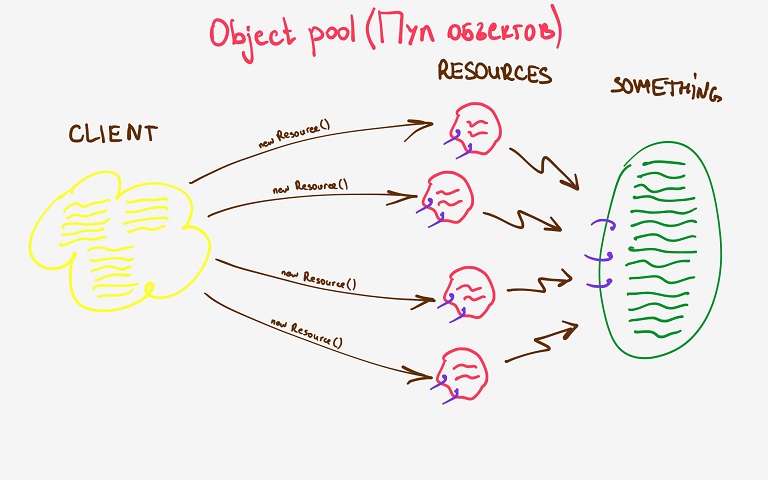 Object pool (Пул объектов)
RESOURCES
SOMETHING
CLIENT
new Resource()
new Resource()
new Resource()
new Resource()